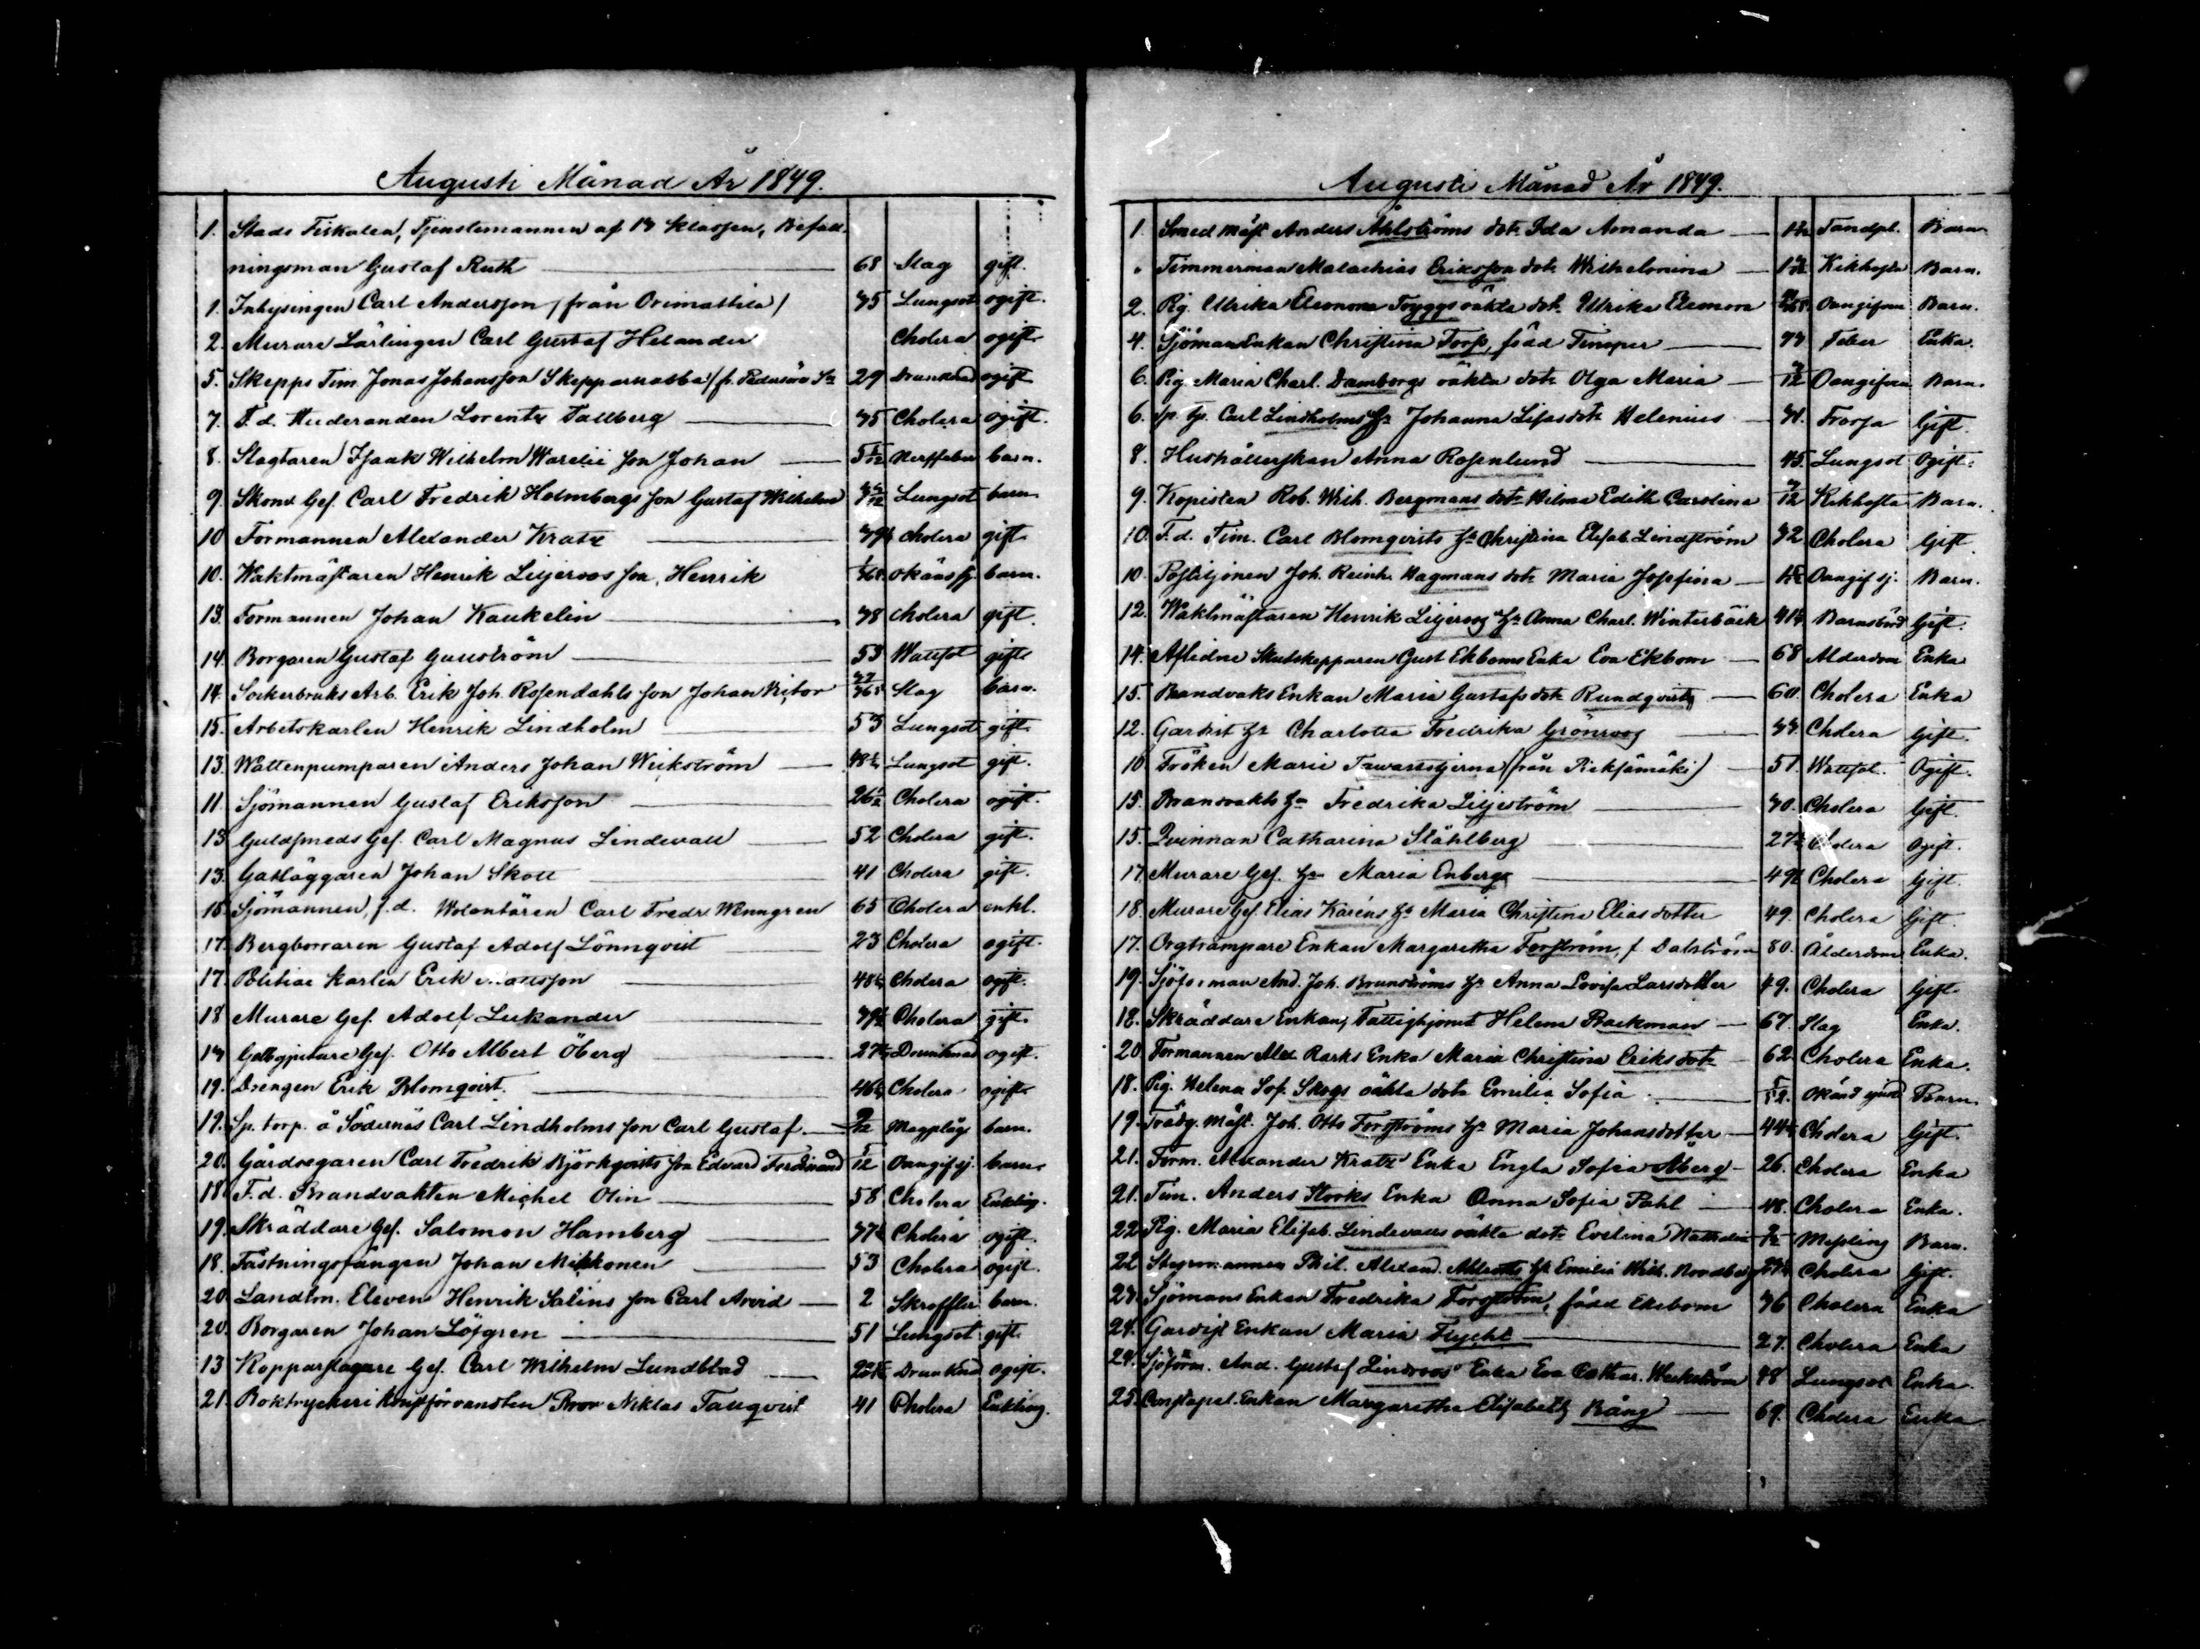 Augusti Månad År 1849.
1. Stads Fiskalen, Tjenstemannen af 14 Klassen, Befall-
ningsman Gustaf Ruth 68 Slag gift.
1. Inhysingen Carl Andersson (från Orimattila) 75 Lungsot ogift.
2. Murare Lärlingen Carl Gustaf Helander Cholera ogift
5. Skepps Tim. Jonas Johansson Skepparnabba (fr. Pedersöre Sn 29 Drunknad ogift
7. F.d. Huderanden Lorentz Tallberg 75 Cholera ogift.
8. Slagtaren Isaak Wilhelm Warelii son Johan Nerffeber barn.
9. Skom. Gef. Carl Fredrik Holmbergs son Gustaf Wilhelm Lungsot barn
10 Formannen Alexander Kratz Cholera gift
10. Waktmästaren Henrik Liljeroos son Henrik Okänd sj. barn.
13. Formannen Johan Kaukelin 78 Cholera gift.
14. Borgaren Gustaf Gauström 53 Wattsot gift
14. Sockerbruks Arb. Erik Joh. Rosendahls son Johan Victor Slag barn.
15. Arbetskarlen Henrik Lindholm 53 Lungsot gift.
13. Wattenpumparen Anders Johan Weikström 48½ Lungsot gift.
11. Sjömannen Gustaf Eriksson 26½ Cholera ogift.
13 Guldsmeds Gef. Carl Magnus Lindevall 52 Cholera gift.
13. Gatläggaren Johan Skott 41 Cholera gift.
15 Sjömannen, f.d. Wolontären Carl Fredr. Wenngren 65 Cholera enkl.
17. Bergborraren Gustaf Adolf Lönnqvist 23 Cholera ogift.
17. Politiae Karlen Erik Mattsson 48½ Cholera ogift.
18 Murare Gef. Adolf Lukander 39½ Cholera gift.
Gelbgjutare Gef. Otto Albert Öberg 27½ Drunknad ogift.
19. Drengen Erik Blomqvist 46½ Cholera ogift
19. Sp. torp. å Södernäs Carl Lindholms son Carl Gustaf Magplåga barn.
20. Gårdsegaren Carl Fredrik Björkqvists son Edvard Ferdinand 5/12 Oangif. sj. barn
18 F.d. Brandvakten Michel Olin 58 Cholera Enkling.
19. Skräddare Gef. Salomon Hamberg 77½ Cholera ogift.
18. Fästningsfången Johan Mikkonen 53 Cholera ogift.
20. Landtm. Eleven Henrik Salins son Carl Arvid 2 Skroffler barn.
20. Borgaren Johan Löfgren 51 Lungsot gift
13 Kopparslagare Gef. Carl Wilhelm Lundblad Drunknad ogift.
21. Boktryckeri Konstförvandten Bror Niklas Tanqvist 41 Cholera Enkling.
Augusti Månad År 1849.
1. Smed mäst. Anders Åhlströms dotr Ida Amanda Tandspl. Barn
" Timmerman Malachias Eriksson dotr Wilhelmina Kikhosta Barn.
2. Pig. Ulrika Eleonora Tryggs oäkta dotr Ulrika Eleonora Oangifven Barn.
4. Sjöman Enkan Christina Torp, född Timper 77 Feber Enka.
6. Pig. Maria Charl. Damborgs oäkta dotr Olga Maria Oangifven Barn.
6. Sp. tp. Carl Lindholms hu Johanna Lisasdotr Helenius Frossa Gift.
8. Hushållerskan Anna Rosenlund 45. Lungsot Ogift.
9. Kopisten Rob. Wilh. Bergmans dotr Hilma Edith Carolina 7/12 Kikhosta Barn.
10. F.d. Tim. Carl Blomqvists hu Christina Elisab. Lindström 72 Cholera Gift.
10. Postiljonen Joh. Reinh. Hagmans dotr Maria Josefina Oangif. sj. Barn.
12. Waktmästaren Henrik Liljeroos hu Anna Charl. Winterbäck 41½ Barnsbörd Gift.
14. Aflidne Skutskepparen Gust. Ekboms Enka Eva Ekbom 68 Alderdom Enka
15. Brandvakts Enkan Maria Gustafsdotr Rundqvist 60 Cholera Enka
12. Gardist hu Charlotta Fredrika Grönroos 33. Cholera Gift.
10 Fröken Marie Tawaststjerna (från Pieksämäki) 51. Wattsot. Ogift.
15. Brandvakts hu Fredrika Liljeström 70. Cholera Gift.
15. Qvinnan Catharina Ståhlberg 27½ Cholera Ogift.
17. Murare Gef. hu Maria Enberg 49½ Cholera Gift.
18. Murare Gef. Elias Karéns hu Maria Christina Eliasdotter 49. Cholera Gift.
17. Orgtrampare Enkan Margaretha Forström, f. Dalström 80. Ålderdom Enka.
19. Sjöförman And. Joh. Brunströms hu Anna Lovisa Larsdotter 49. Cholera Gift.
18. Skräddare Enkan, Fattighjonet Helena Backman 67. Slag Enka.
20 Formannen Alex. Rarks Enka Maria Christina Eriksdotr 62. Cholera Enka.
18. Pig. Helena Sof. Skogs oäkta dotr Emilia Sofia Okänd sjukd. Barn.
19. Trädg. Mäst. Joh. Otto Forströms hu Maria Johansdotter 44½ Cholera Gift.
21. Form. Alexander Kratz Enka Engla Sofia Åberg 26. Cholera Enka
21. Tim. Anders Hooks Enka Anna Sofia Pahl 48. Cholera Enka.
22. Pig. Maria Elisab. Lindevalls oäkta dotr Evelina Nathalia Messling Barn.
22 Styrmannen Phil. Alexand. Ahlroths hu Emilia Wilh. Nordberg Cholera Gift.
23. Sjömans Enkan Fredrika Forström, född Ekebom 76 Cholera Enka
24. Gardist Enkan Maria Flycht 27. Cholera Enka
24. Sjöförm. And. Gustaf Lindroos Enka Eva Cathar. Weckström 48 Lungsot Enka.
25. Constapel. Enkan Margaretha Elisabeth Bång 69. Cholera Enka